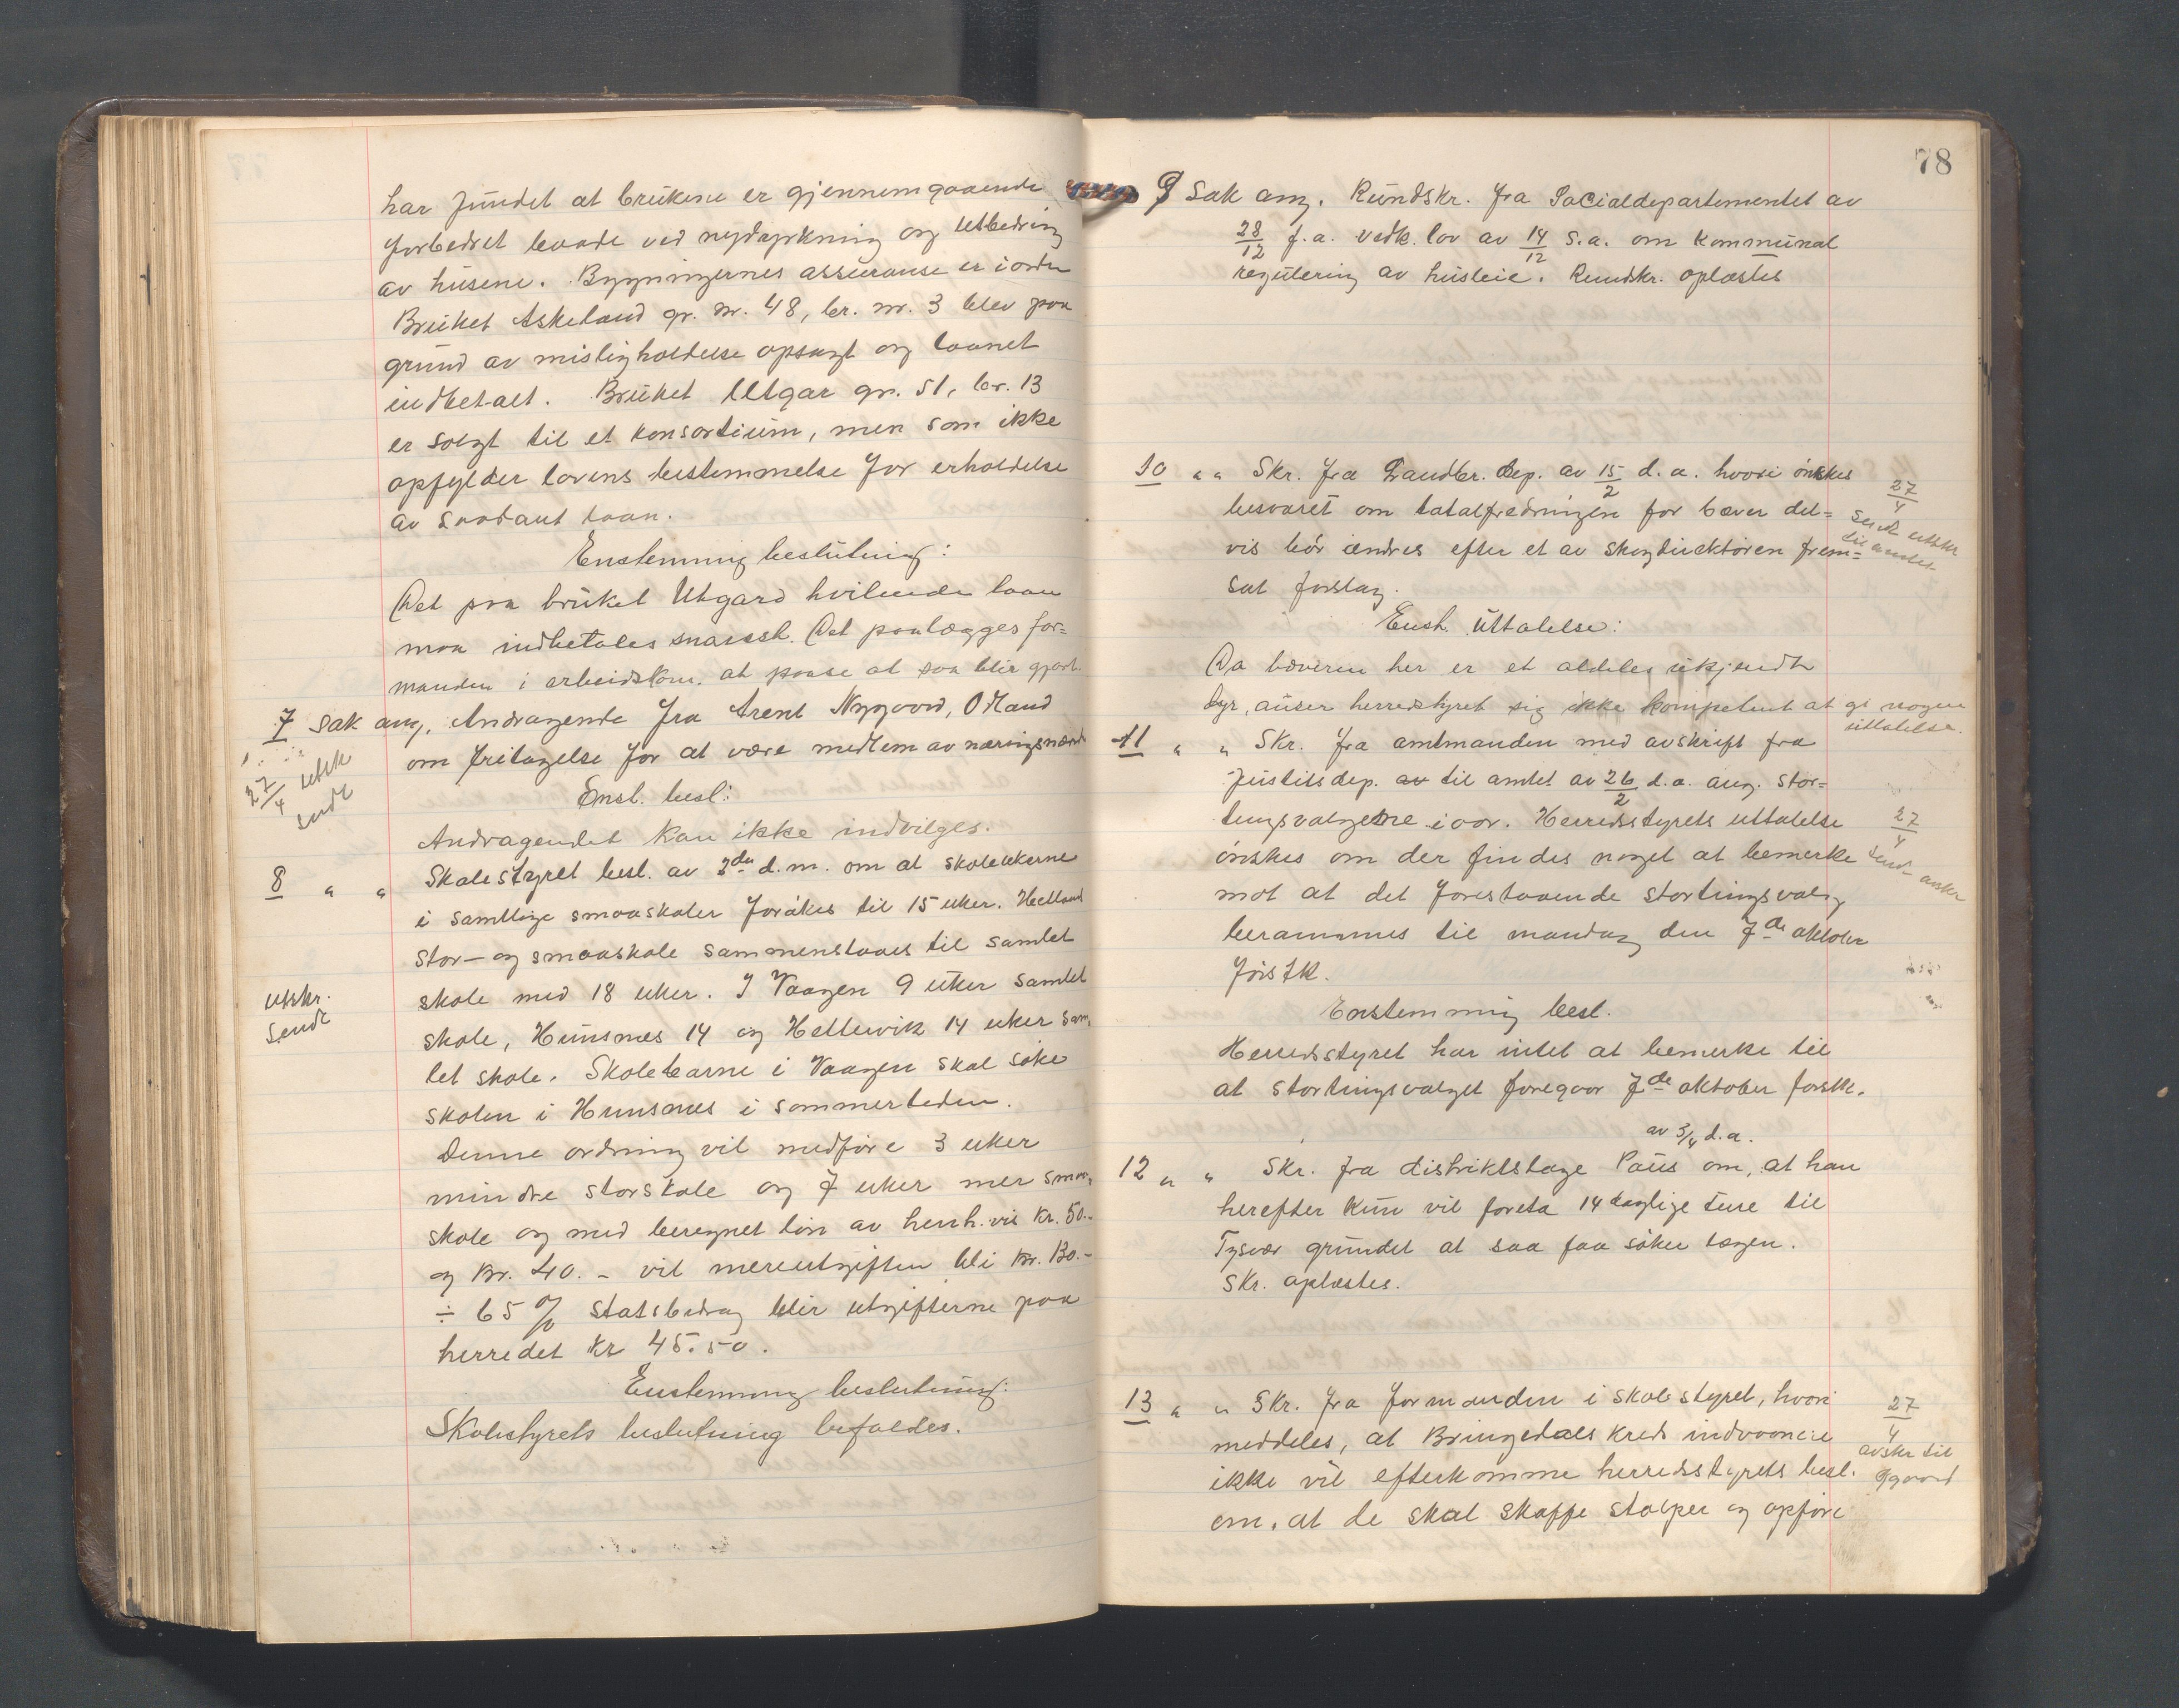 har fundet at brukene er gjennemgaaende
forbedret baade ved nydyrkning og utbedring
av husene. Bygningernes assuranse er i orden
Bruket Askeland gr. nr. 48, br. nr. 3 blev paa
grund av misligholdelse opsagt og laanet
indbetalt. Bruket Utgar gr. 51, br. 13
er solgt til et konsortium, men som ikke
opfylder lovens bestemmelse for erholdelse
av saadant laan.
Enstemmig beslutning:
Det paa bruket Utgard hvilende laan
maa indbetales snarest. Det paalægges for=
manden i arbeidskom. at paase at saa blir gjort.
7 Sak ang. Andragende fra Arent Nygaard, Odland
om fritagelse for at være medlem av næringsnævnd
27/4 utskr.
sendt
Enst. besl:
Andragendet kan ikke indvilges.
8 " " Skolestyret besl. av 2den d.m. om at skoleukerne
i samtlige smaaskoler forökes til 15 uker. Hetland
stor- og smaaskole sammenslaaes til samlet
skole med 18 uker. I Vaagen 9 uker samlet
utskr.
sendt
skole, Hunsnes 14 og Hellevik 14 uker sam=
let skole. Skolebarne i Vaagen skal söke
skolen i Hunsnes i sommertiden.
Denne ordning vil medföre 3 uker
mindre storskole og 7 uker mer smaa=
skole og med beregnet lön av henh.vis kr. 50.-
og kr. 40.- vil merutgiften bli kr. 130.-
÷ 65 % statsbidrag blir utgifterne paa
herredet kr 45.50.
Enstemmig beslutning:
Skolestyrets beslutning bifaldes.
78
9 Sak ang. Rundskr. fra Socialdepartementet av
28/12 f.a. vedk. lov av 14/12 s.a. om kommunal
regulering av husleie. Rundskr. oplæstes
10 " " Skr. fra Landbr. dep. av 15/2 d.a. hvori önskes
besvaret om totalfredningen for bæver del=
vis bör ændres efter et av skogdirektören frem=
sat forslag.
27/4
sendt utskr
til amtet
Enst. Uttalelse:
Da bæveren her er et aldeles ukjendt
dyr, anser herredstyret sig ikke kompetent at gi nogen
uttalelse.
11 " " Skr. fra amtmanden med avskrift fra
Justitsdep. av til amtet av 26/2 d.a. ang. stor=
tingsvalgene iaar. Herredsstyrets uttalelse
önskes om der findes noget at bemerke
mot at det forestaaende stortingsvalg
berammes til mandag den 7de oktober
förstk.
27/4
sendt
Enstemmig besl.
Herredsstyret har intet at bemerke til
at stortingsvalget foregaar 7de oktober förstk.
av 3/4 d.a.
12 " " Skr. fra distriktslæge Paus om, at han
herefter kun vil foreta 14 daglige ture til
Tysvær grundet at saa faa söker lægen.
Skr. oplæstes.
13 " " Skr. fra formanden i skolestyret, hvori
meddeles, at Bringedals kreds indvaanere
ikke vil efterkomme herredsstyrets besl.
om, at de skal skaffe stolper og opföre
27/4
avskr til